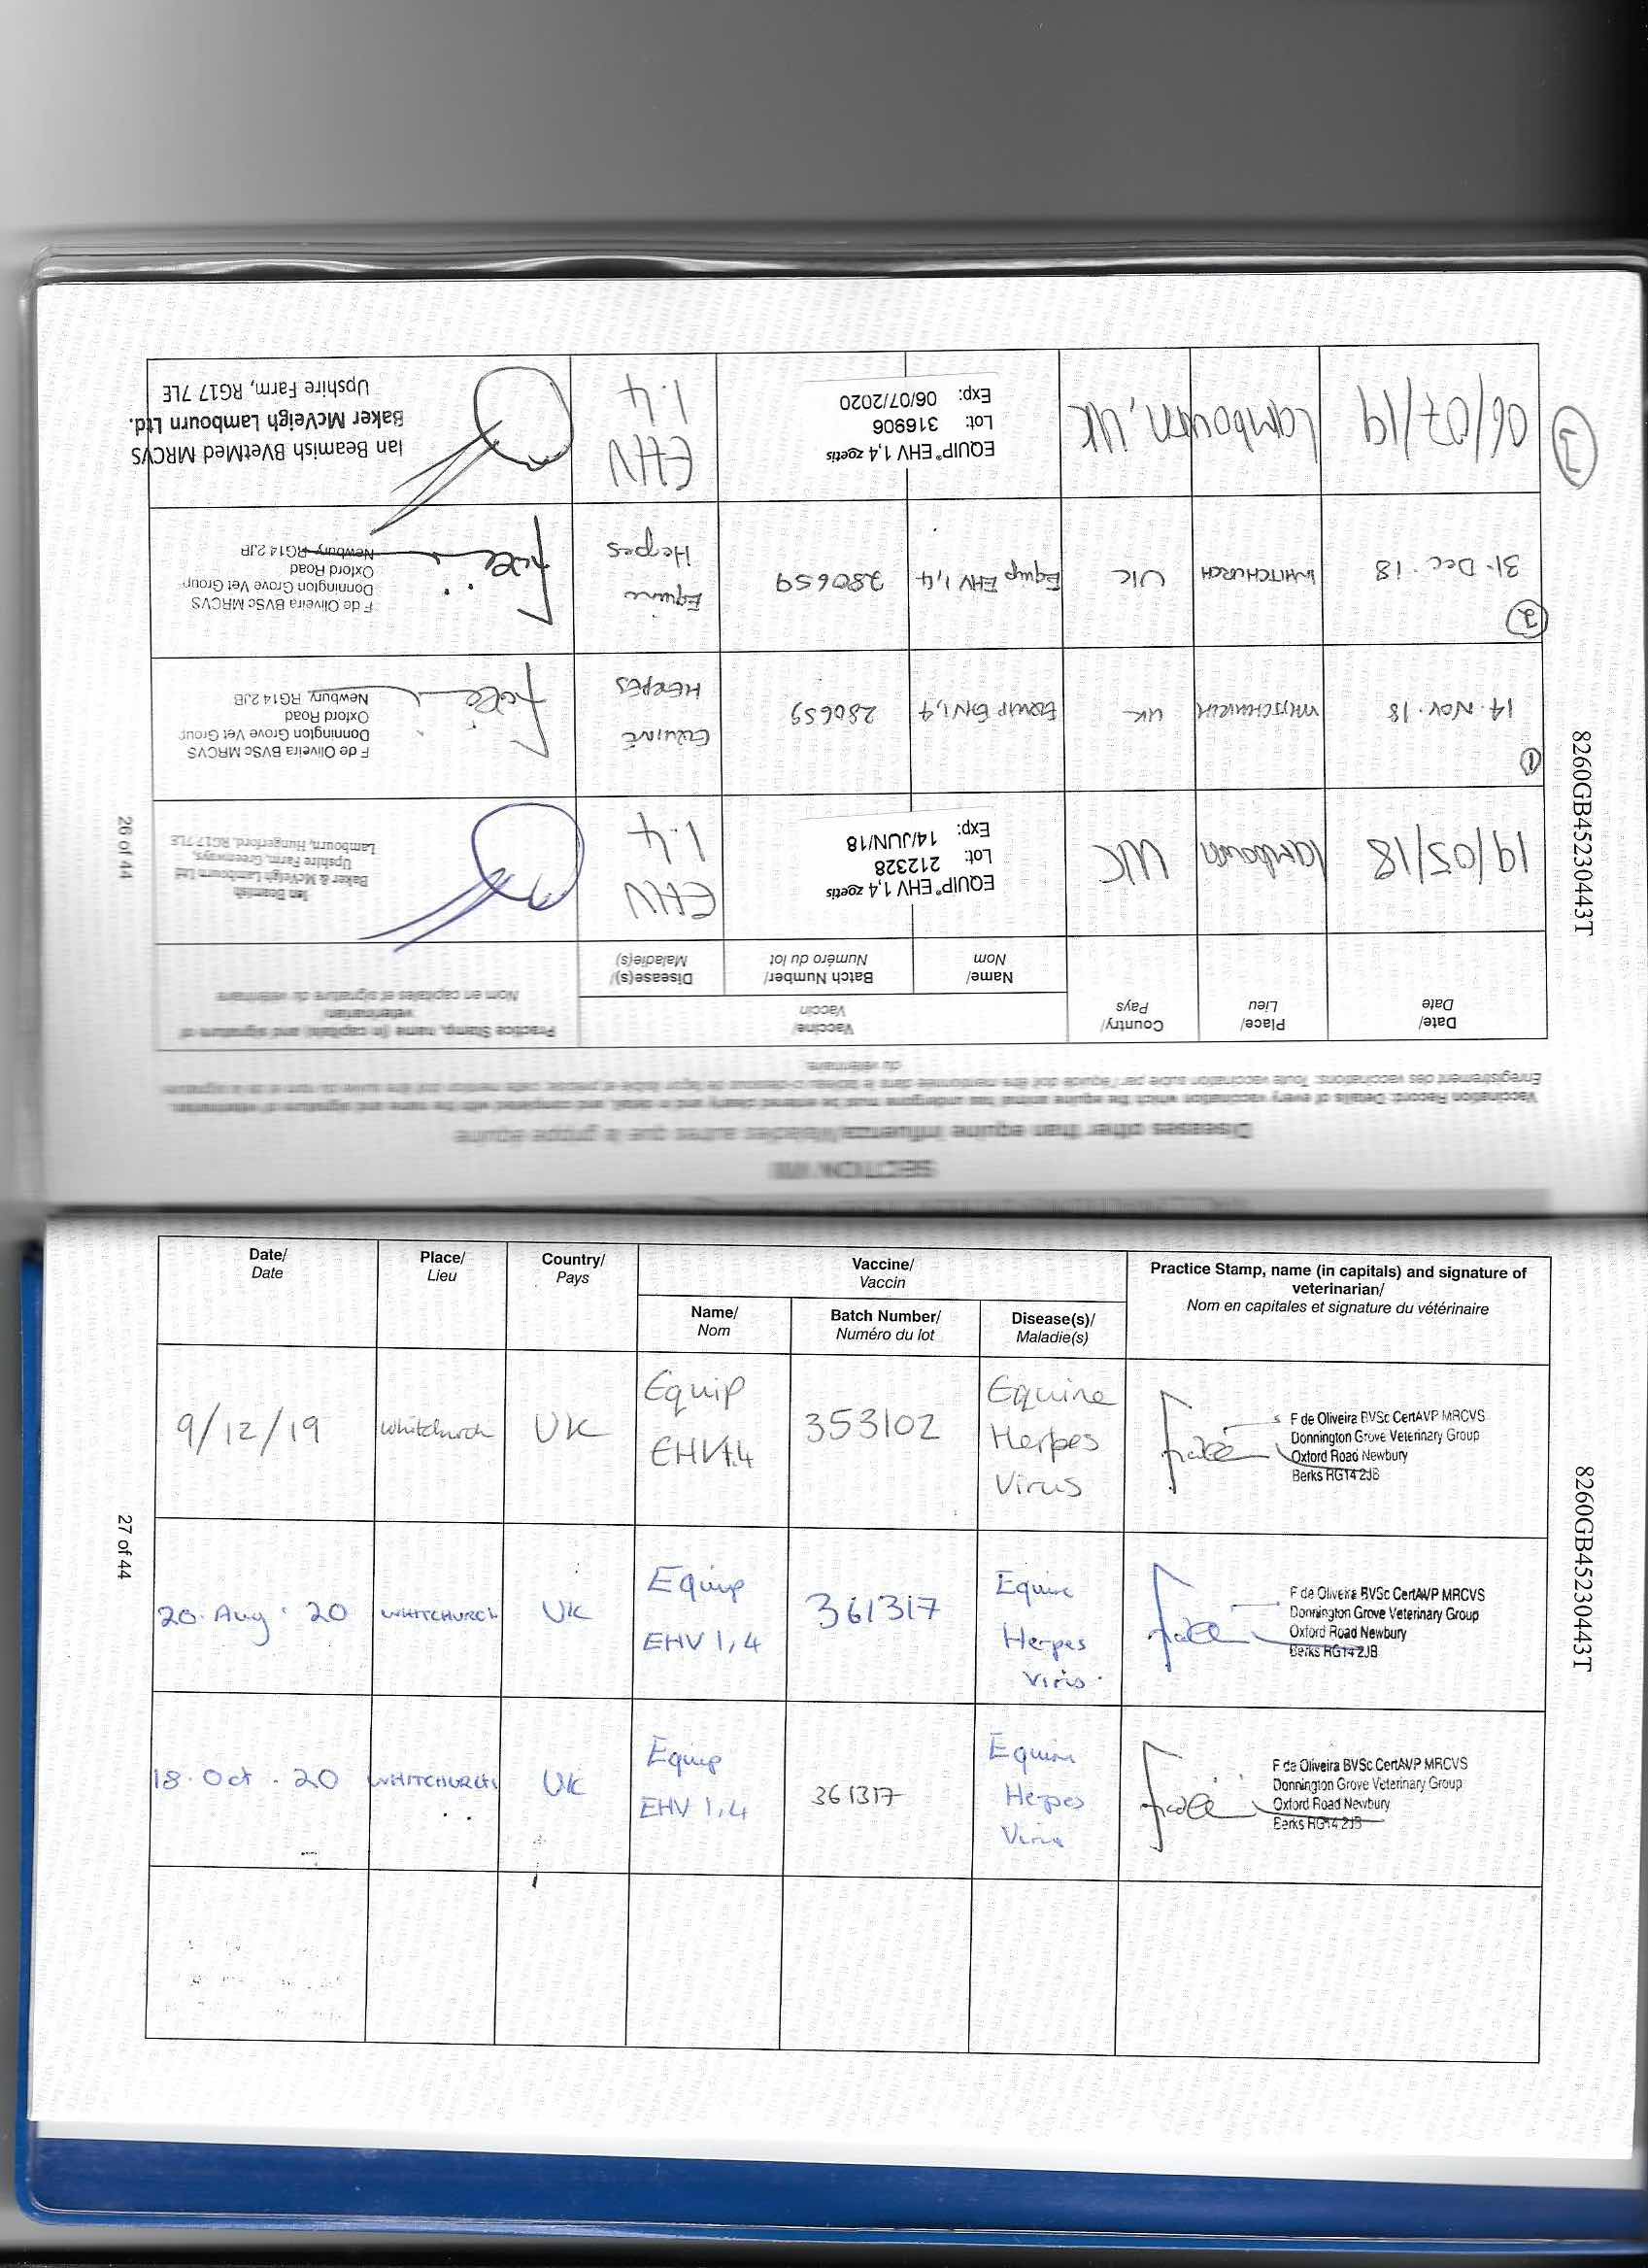 SECTION VIII
Diseases other than equine influenza/Maladies autres que la grippe équine
Vaccination Record: Details of every vaccination which the equine animal has undergone must be entered clearly and in detail, and completed with the name and signature of veterinarian.
Enregistrement des vaccinations: Toute vaccination subie par l'équidé doit être mentionnée dans le tableau ci-dessous de façon lisible et précise; cette mention doit être suivie du nom et de la signature
du vétérinaire.
Date/
Date
Place/
Lieu
Country/
Pays
Vaccine/
Vaccin
Practice Stamp, name (in capitals) and signature of
veterinarian/
Nom en capitales et signature du vétérinaire
Name/
Nom
Batch Number/
Numéro du lot
Disease(s)/
Maladie(s)
19/05/18
Lambourn
UK
EQUIP® EHV 1,4 zoetis
Lot: 212328
Exp: 14/JUN/18
EHV
1.4
Ian Beamish
Baker & McVeigh Lambourn Ltd
Upshire Farm, Greenways,
Lambourn, Hungerford, RG17 7LE
1
14. Nov. 18
WHITCHURCH
UK
280659
EQUINE
HERPES
F de Oliveira BVSc MRCVS
Donnington Grove Vet Group
Oxford Road
Newbury, RG14 2JB
2
31. Dec. 18
WHITCHURCH
UK
Equip EHV 1,4
280659
Equine
Herpes
F de Oliveira BVSc MRCVS
Donnington Grove Vet Group
Oxford Road
Newbury RG14 2JB
06/07/19
Lambourn, UK
EQUIP® EHV 1,4 zoetis
Lot: 316906
Exp: 06/07/2020
EHV
1.4
Ian Beamish BVetMed MRCVS
Baker McVeigh Lambourn Ltd.
Upshire Farm, RG17 7LE
26 of 44
8260GB45230443T
Date/
Date
Place/
Lieu
Country/
Pays
Vaccine/
Vaccin
Practice Stamp, name (in capitals) and signature of
veterinarian/
Nom en capitales et signature du vétérinaire
Name/
Nom
Batch Number/
Numéro du lot
Disease(s)/
Maladie(s)
9/12/19
Whitchurch
UK
Equip
EHV1.4
353102
Equine
Herpes
Virus
F de Oliveira BVSc CertAVP MRCVS
Donnington Grove Veterinary Group
Oxford Road Newbury
Berks RG14 2JB
20. Aug. 20
WHITCHURCH
UK
Equip
EHV 1,4
361317
Equine
Herpes
Virus.
F de Oliveira BVSc CertAVP MRCVS
Donnington Grove Veterinary Group
Oxford Road Newbury
Berks RG14 2JB
18. Oct. 20
WHITCHURCH
UK
Equip
EHV 1,4
361317
Equine
Herpes
Virus
F de Oliveira BVSc CertAVP MRCVS
Donnington Grove Veterinary Group
Oxford Road Newbury
Berks RG14 2JB
27 of 44
8260GB45230443T